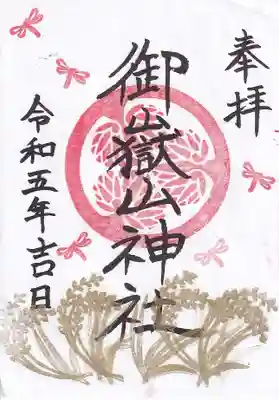 奉拝
御嶽山神社
令和五年吉日